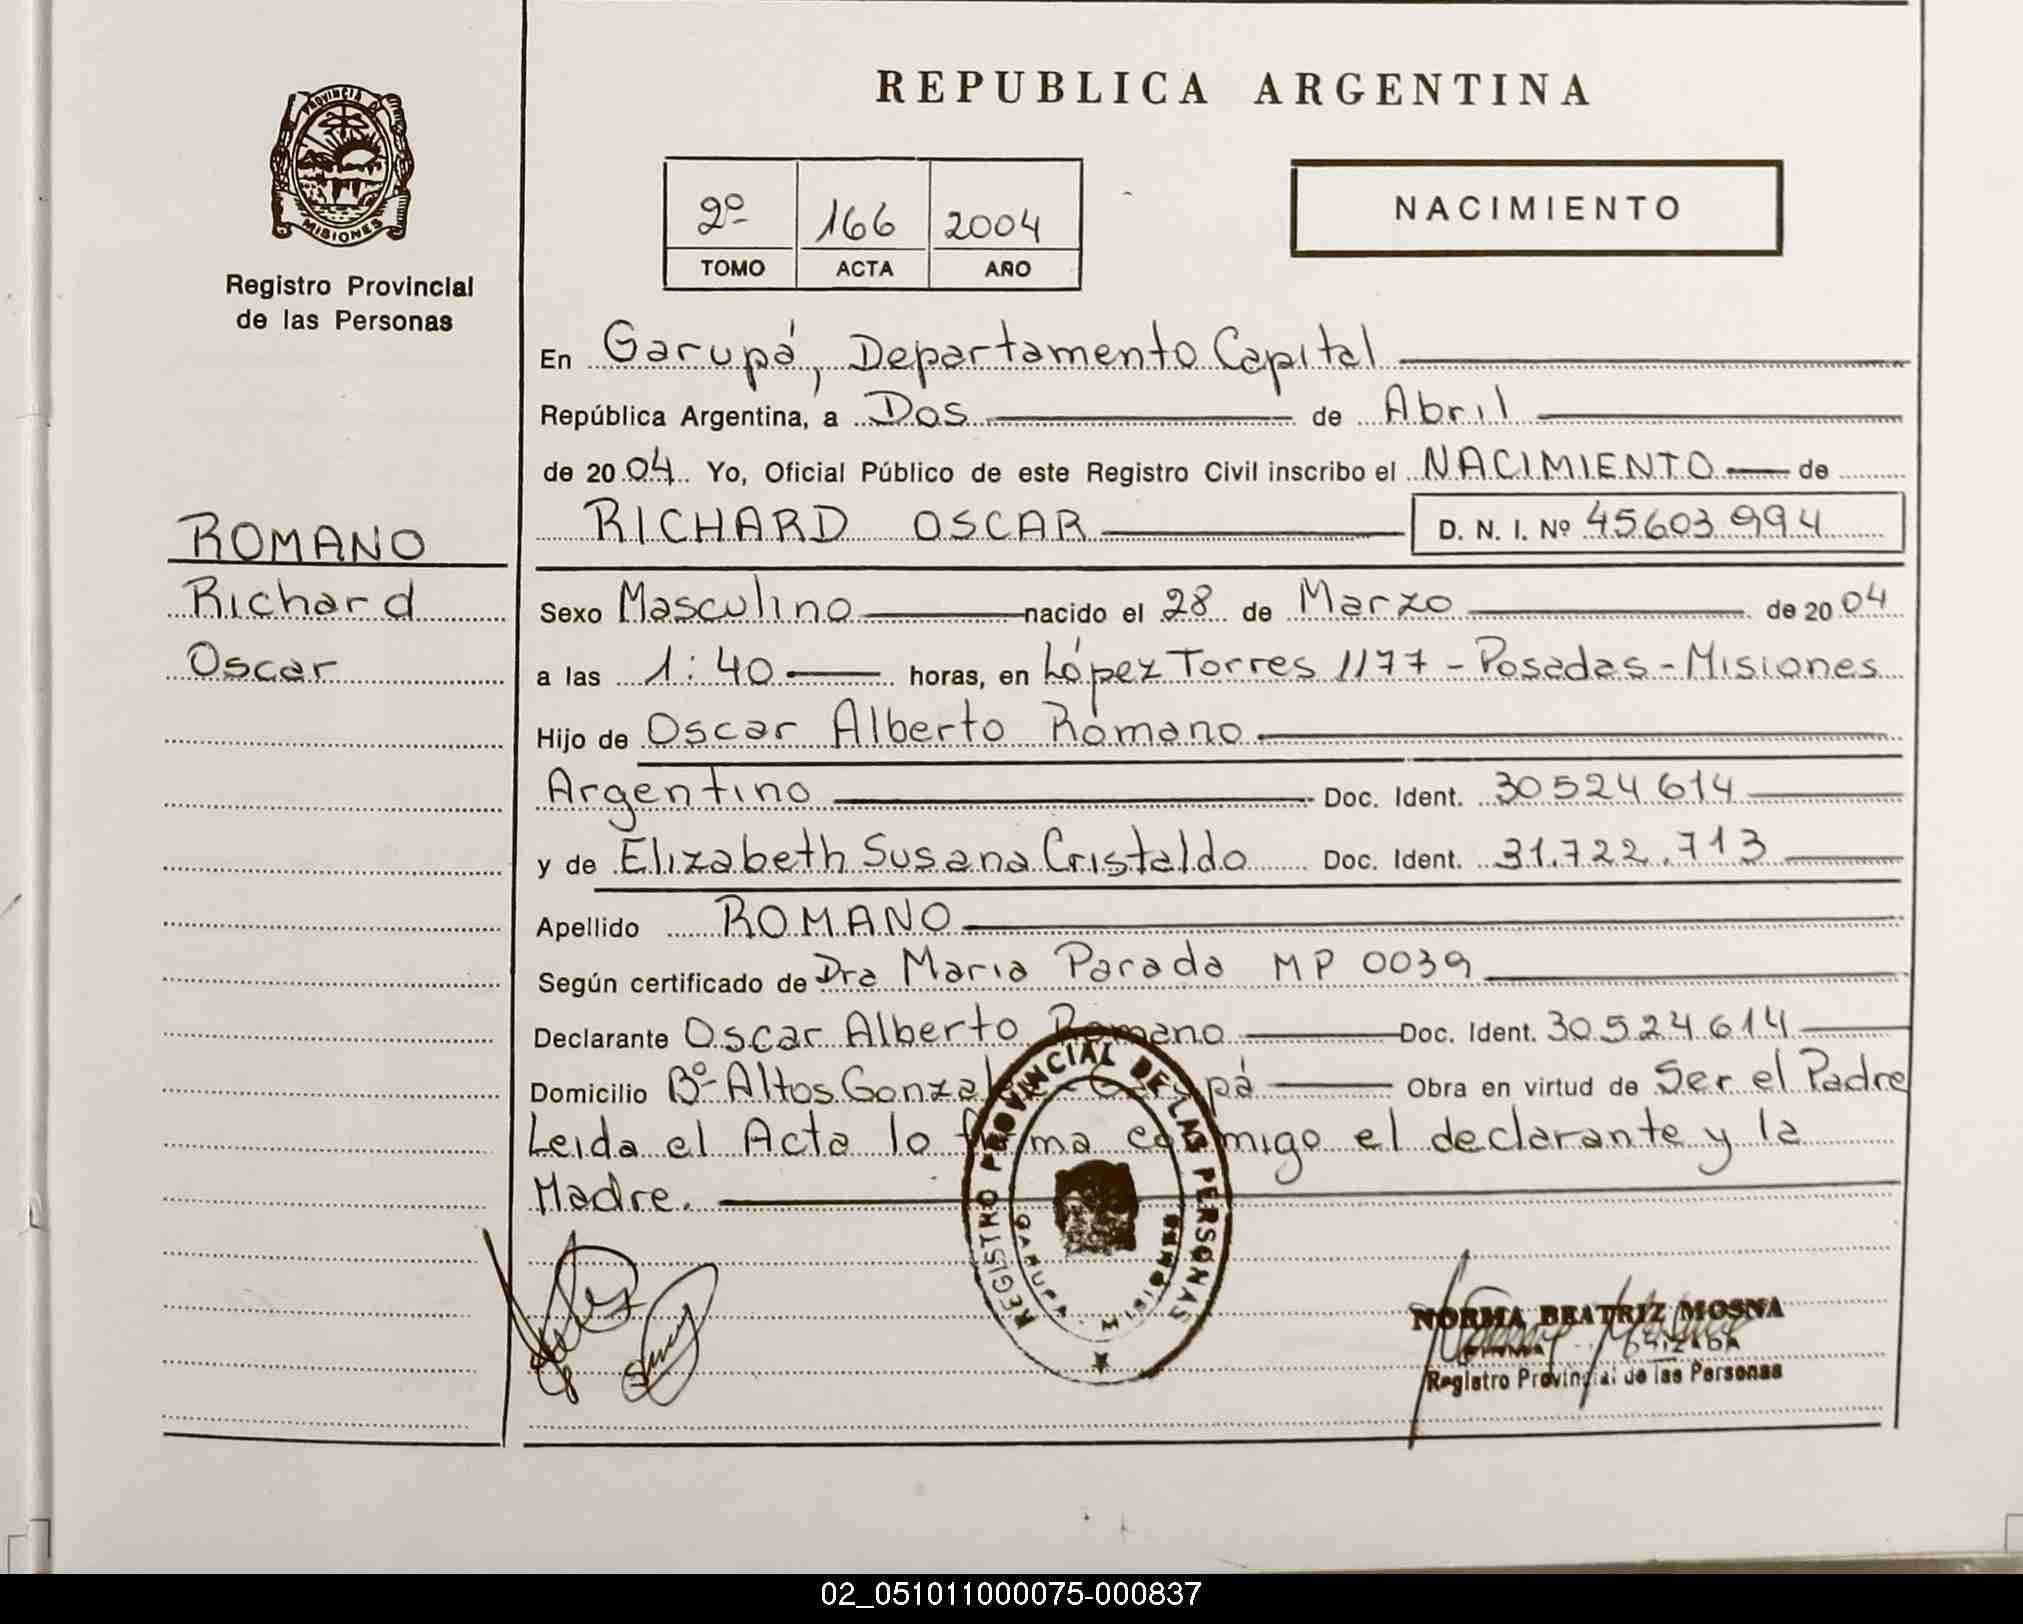 REPUBLICA ARGENTINA
PROVINCIA D
MISIONES
Registro Provincial
de las Personas
2º 166 2004
TOMO ACTA AÑO
NACIMIENTO
En Garupá, Departamento Capital
República Argentina, a Dos de Abril
de 2004 Yo, Oficial Público de este Registro Civil inscribo el NACIMIENTO de
RICHARD OSCAR D. N. I. Nº 45603994
ROMANO
Richard
Oscar
Sexo Masculino nacido el 28 de Marzo de 2004
a las 1:40 horas, en López Torres 1177 - Posadas - Misiones
Hijo de Oscar Alberto Romano
Argentino Doc. Ident. 30524614
y de Elizabeth Susana Cristaldo Doc. Ident. 31.722.713
Apellido ROMANO
Según certificado de Dra Maria Parada MP 0039
Declarante Oscar Alberto Romano Doc. Ident. 30524614
Domicilio Bº Altos Gonzalez Garupá Obra en virtud de Ser el Padre
Leida el Acta lo firma conmigo el declarante y la
Madre.
REGISTRO PROVINCIAL DE LAS PERSONAS
GARUPA
NORMA BEATRIZ MOSNA
Registro Provincial de las Personas
02_051011000075-000837